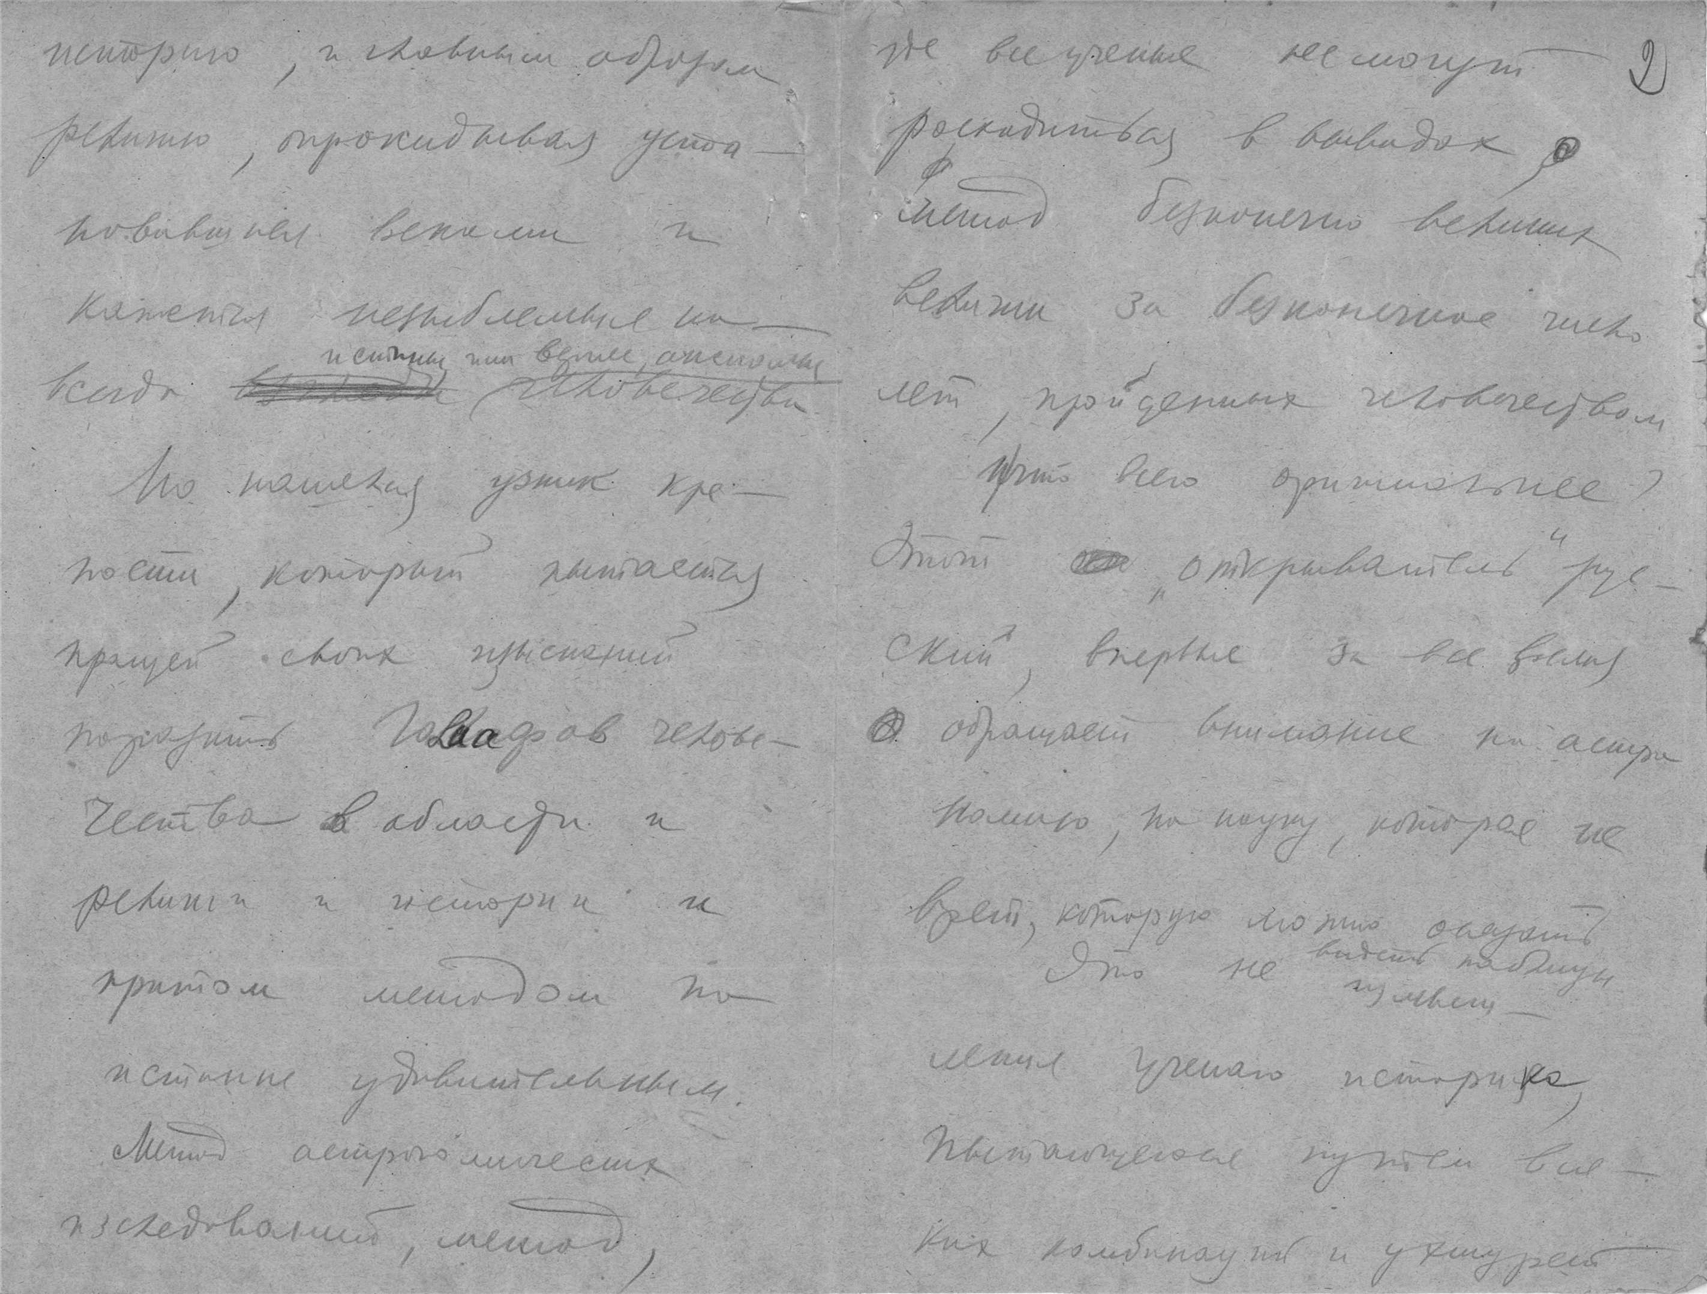 исторію, и главным образом
религию, опрокидывая уста-
новившиеся веками и
кажется незыблемые на-
истины или вернее, аксиомы
всегда человечества
Но нашелся узник кре-
пости, который пытается
пращей своих изысканий
поразить Голиафов челове-
чества в области и
религии и истории и
притом методом по
истине удивительным.
Метод астрономических
изследований, метод,
2
где все ученые не могут
расходиться в выводах,
метод безконечно великих
величин за безконечное число
лет, пройденных человечеством
Что всего оригинальнее?
Этот „открыватель“ рус-
ский, впервые за все время
обращает внимание на астро
номию, на науку, которая не
врет, которую можно осязать
видеть наблюдая
Это не измышл-
ления ученаго историка,
пытающегося путем вся-
ких комбинаций и ухищрений